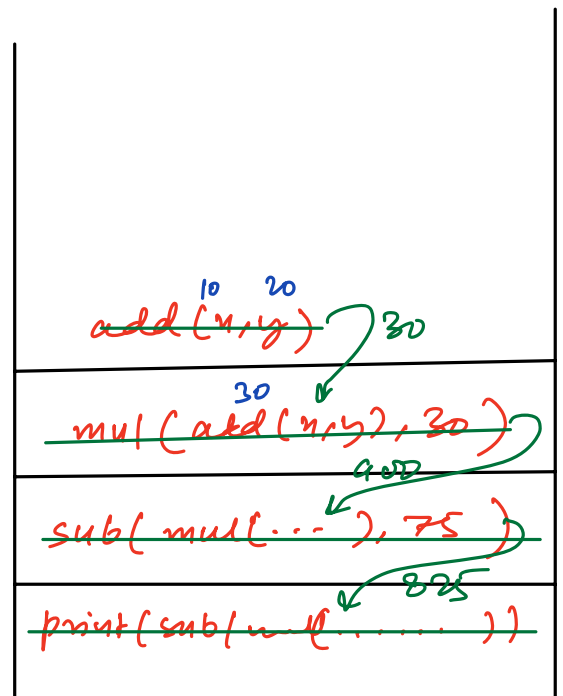 10 20
add (x,y) 30
30
mul ( add (x,y), 30 )
900
sub( mul(... ), 75 )
825
print( sub( mul(....... ) )